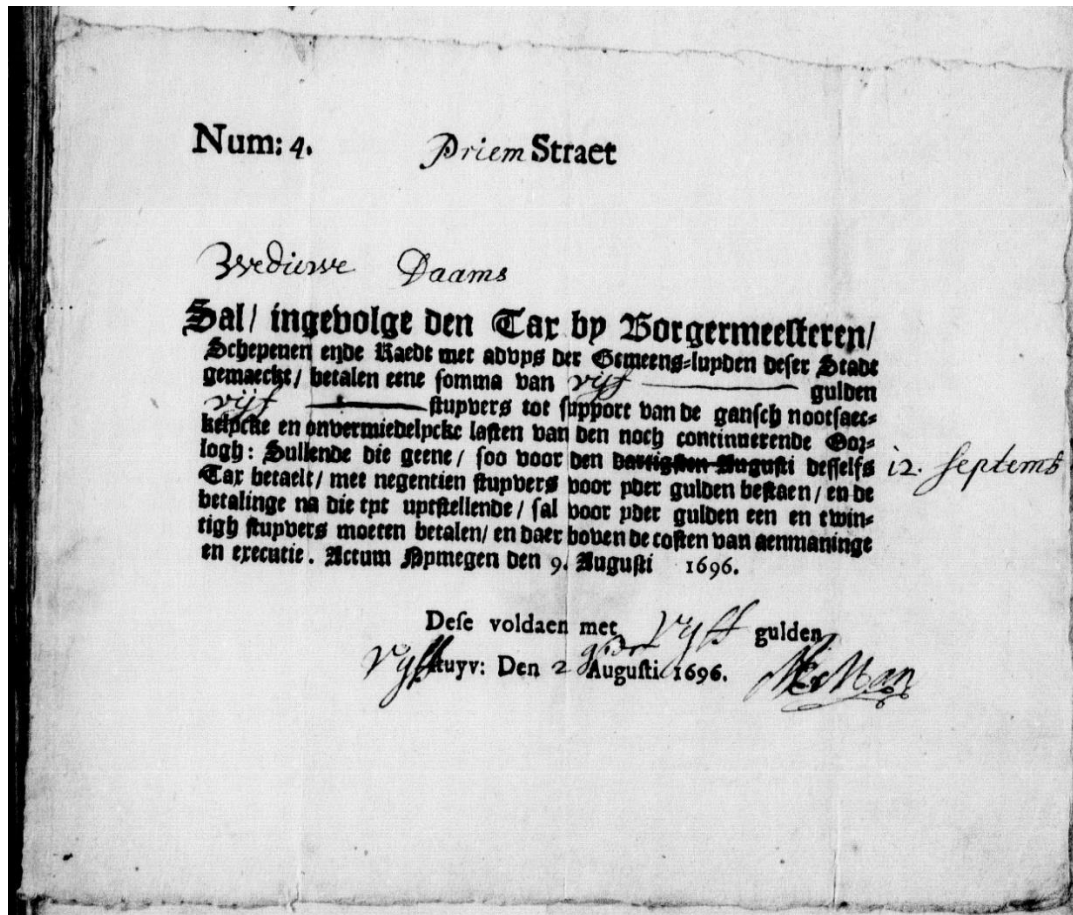 Num: 4. Priem Straet
Wediewe Daams
Sal/ ingevolge den Tax by Borgermeesteren/
Schepenen ende Raedt met advys der Gemeens-luyden deser Stadt
gemaeckt/ betalen eene somma van vijf gulden
vijf stuyvers tot support van de gansch nootsaec-
kelycke en onvermiedelycke lasten van den noch continuerende Oor-
logh: Sullende die geene/ soo voor den dartigsten Augusti desselfs 12. septemb
Tax betaelt/ met negentien stuyvers voor yder gulden bestaen/ en de
betalinge na die tyt uytstellende/ sal voor yder gulden een en twin-
tigh stuyvers moeten betalen/ en daer boven de costen van aenmaninge
en executie. Actum Nymegen den 9. Augusti 1696.
Dese voldaen met vyff gulden
vyff stuyv: Den 2 Augusti 1696.